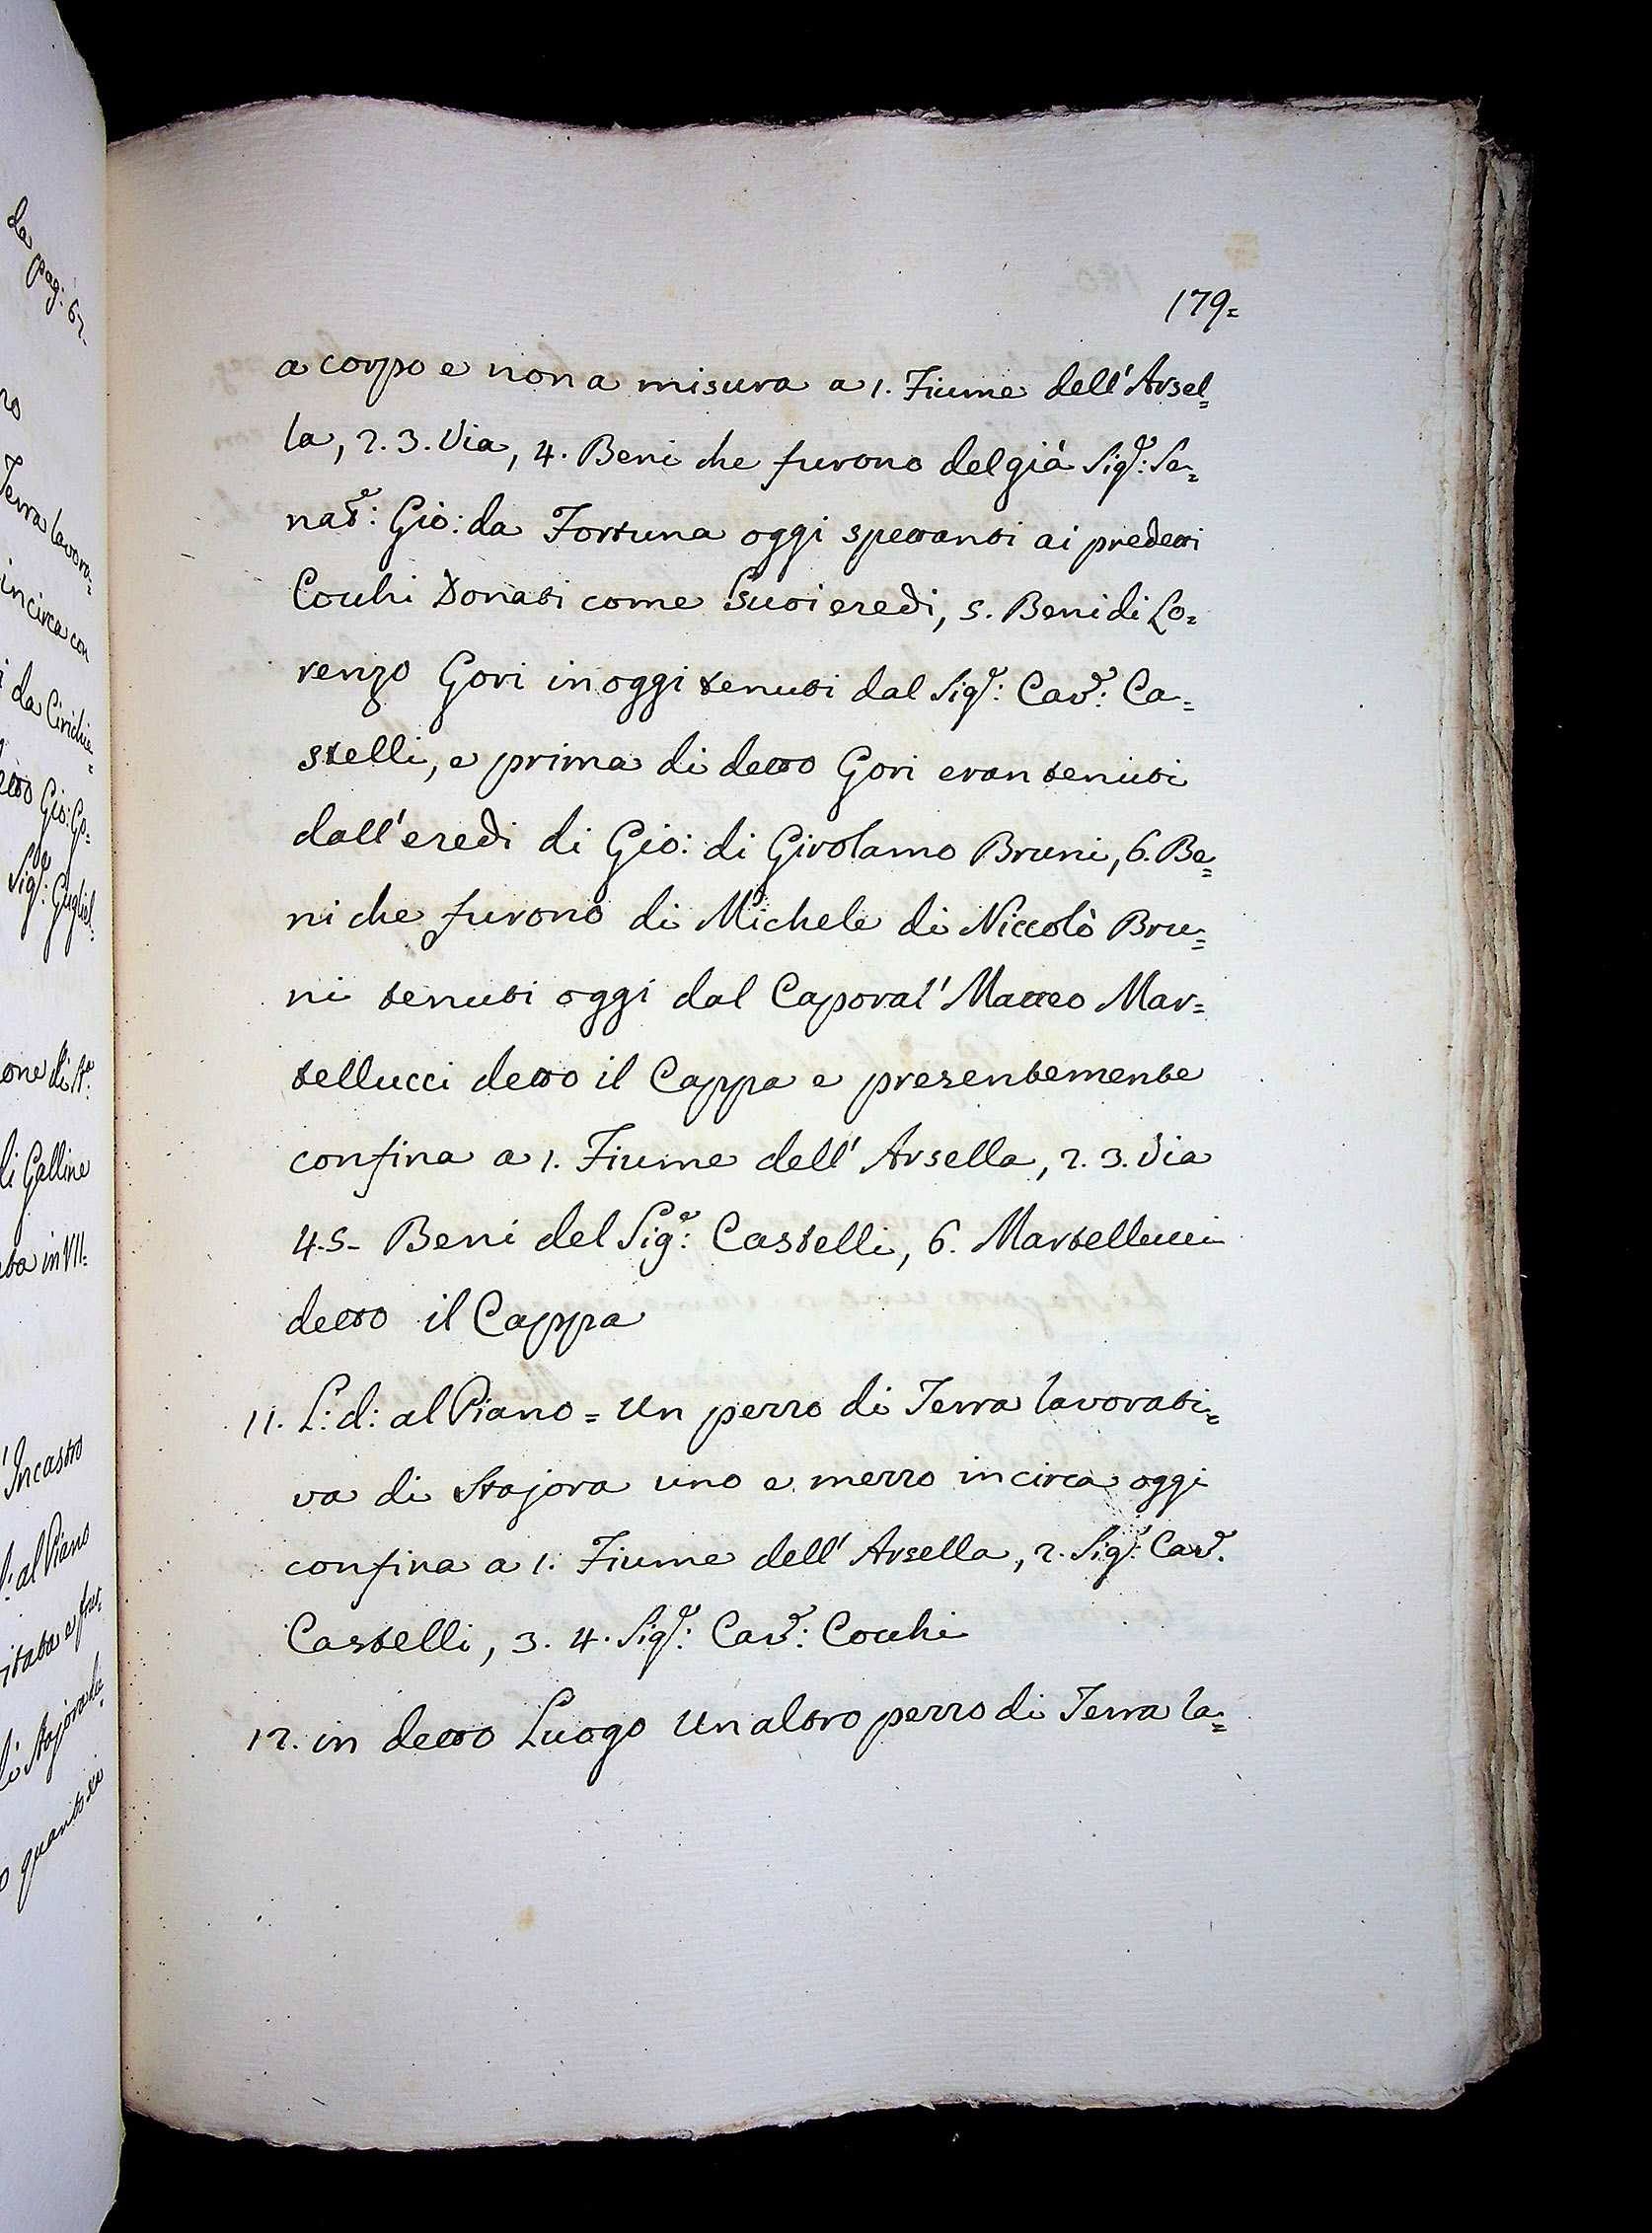 179=
a corpo e non a misura a 1. Fiume dell'Arsel=
la, 2. 3. Via, 4. Beni che furono del già Sigr.e: Se=
nat.e: Gio: da Fortuna oggi spettanti ai predetti
Cocchi Donati come Suoi eredi, 5. Beni di Lo=
renzo Gori in oggi tenuti dal Sigr.e: Cav.e: Ca=
stelli, e prima di detto Gori eran tenuti
dall'eredi di Gio: di Girolamo Bruni, 6. Be=
ni che furono di Michele di Niccolò Bru=
ni tenuti oggi dal Caporal' Matteo Mar=
tellucci detto il Cappa e presentemente
confina a 1. Fiume dell' Arsella, 2. 3. Via
4. 5- Beni del Sig.e: Castelli, 6. Martellucci
detto il Cappa
11. L: d: al Piano = Un pezzo di Terra lavorati=
va di Stajora uno e mezzo in circa oggi
confina a 1. Fiume dell' Arsella, 2. Sigr.e: Cav.e
Castelli, 3. 4. Sigr.e: Cav.e: Cocchi
12. in detto Luogo Un altro pezzo di Terra la=
da pag: 62-
Terra lavora=
incirca con
da Cirichie=
Gio: Gr=
Sigr.e: Gugliel=
one di
di Galline
in VII=
Incastro
al Piano
itata e frut=
di Stajora
quanto sia